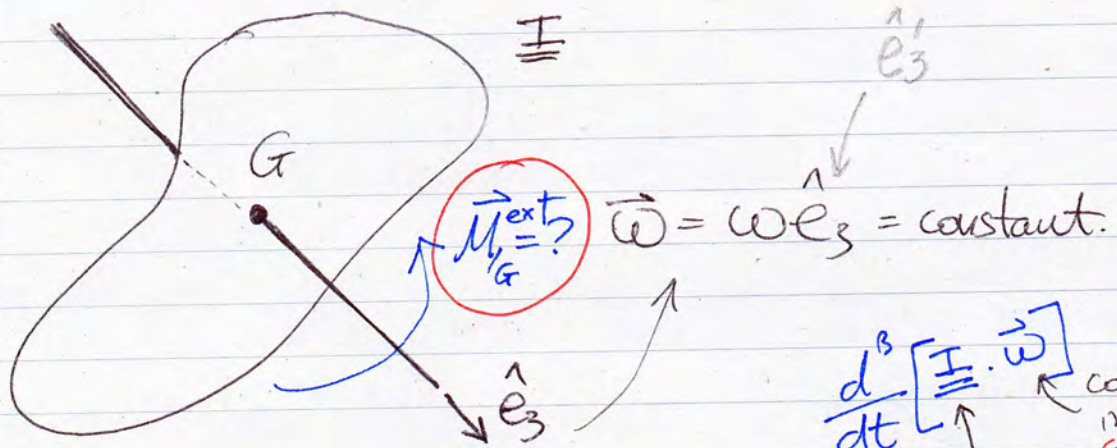 I
ê₃'
G
M⃗_G^ext = ? ω⃗ = ωê₃ = constant.
d^B/dt [I · ω⃗]
ê₃